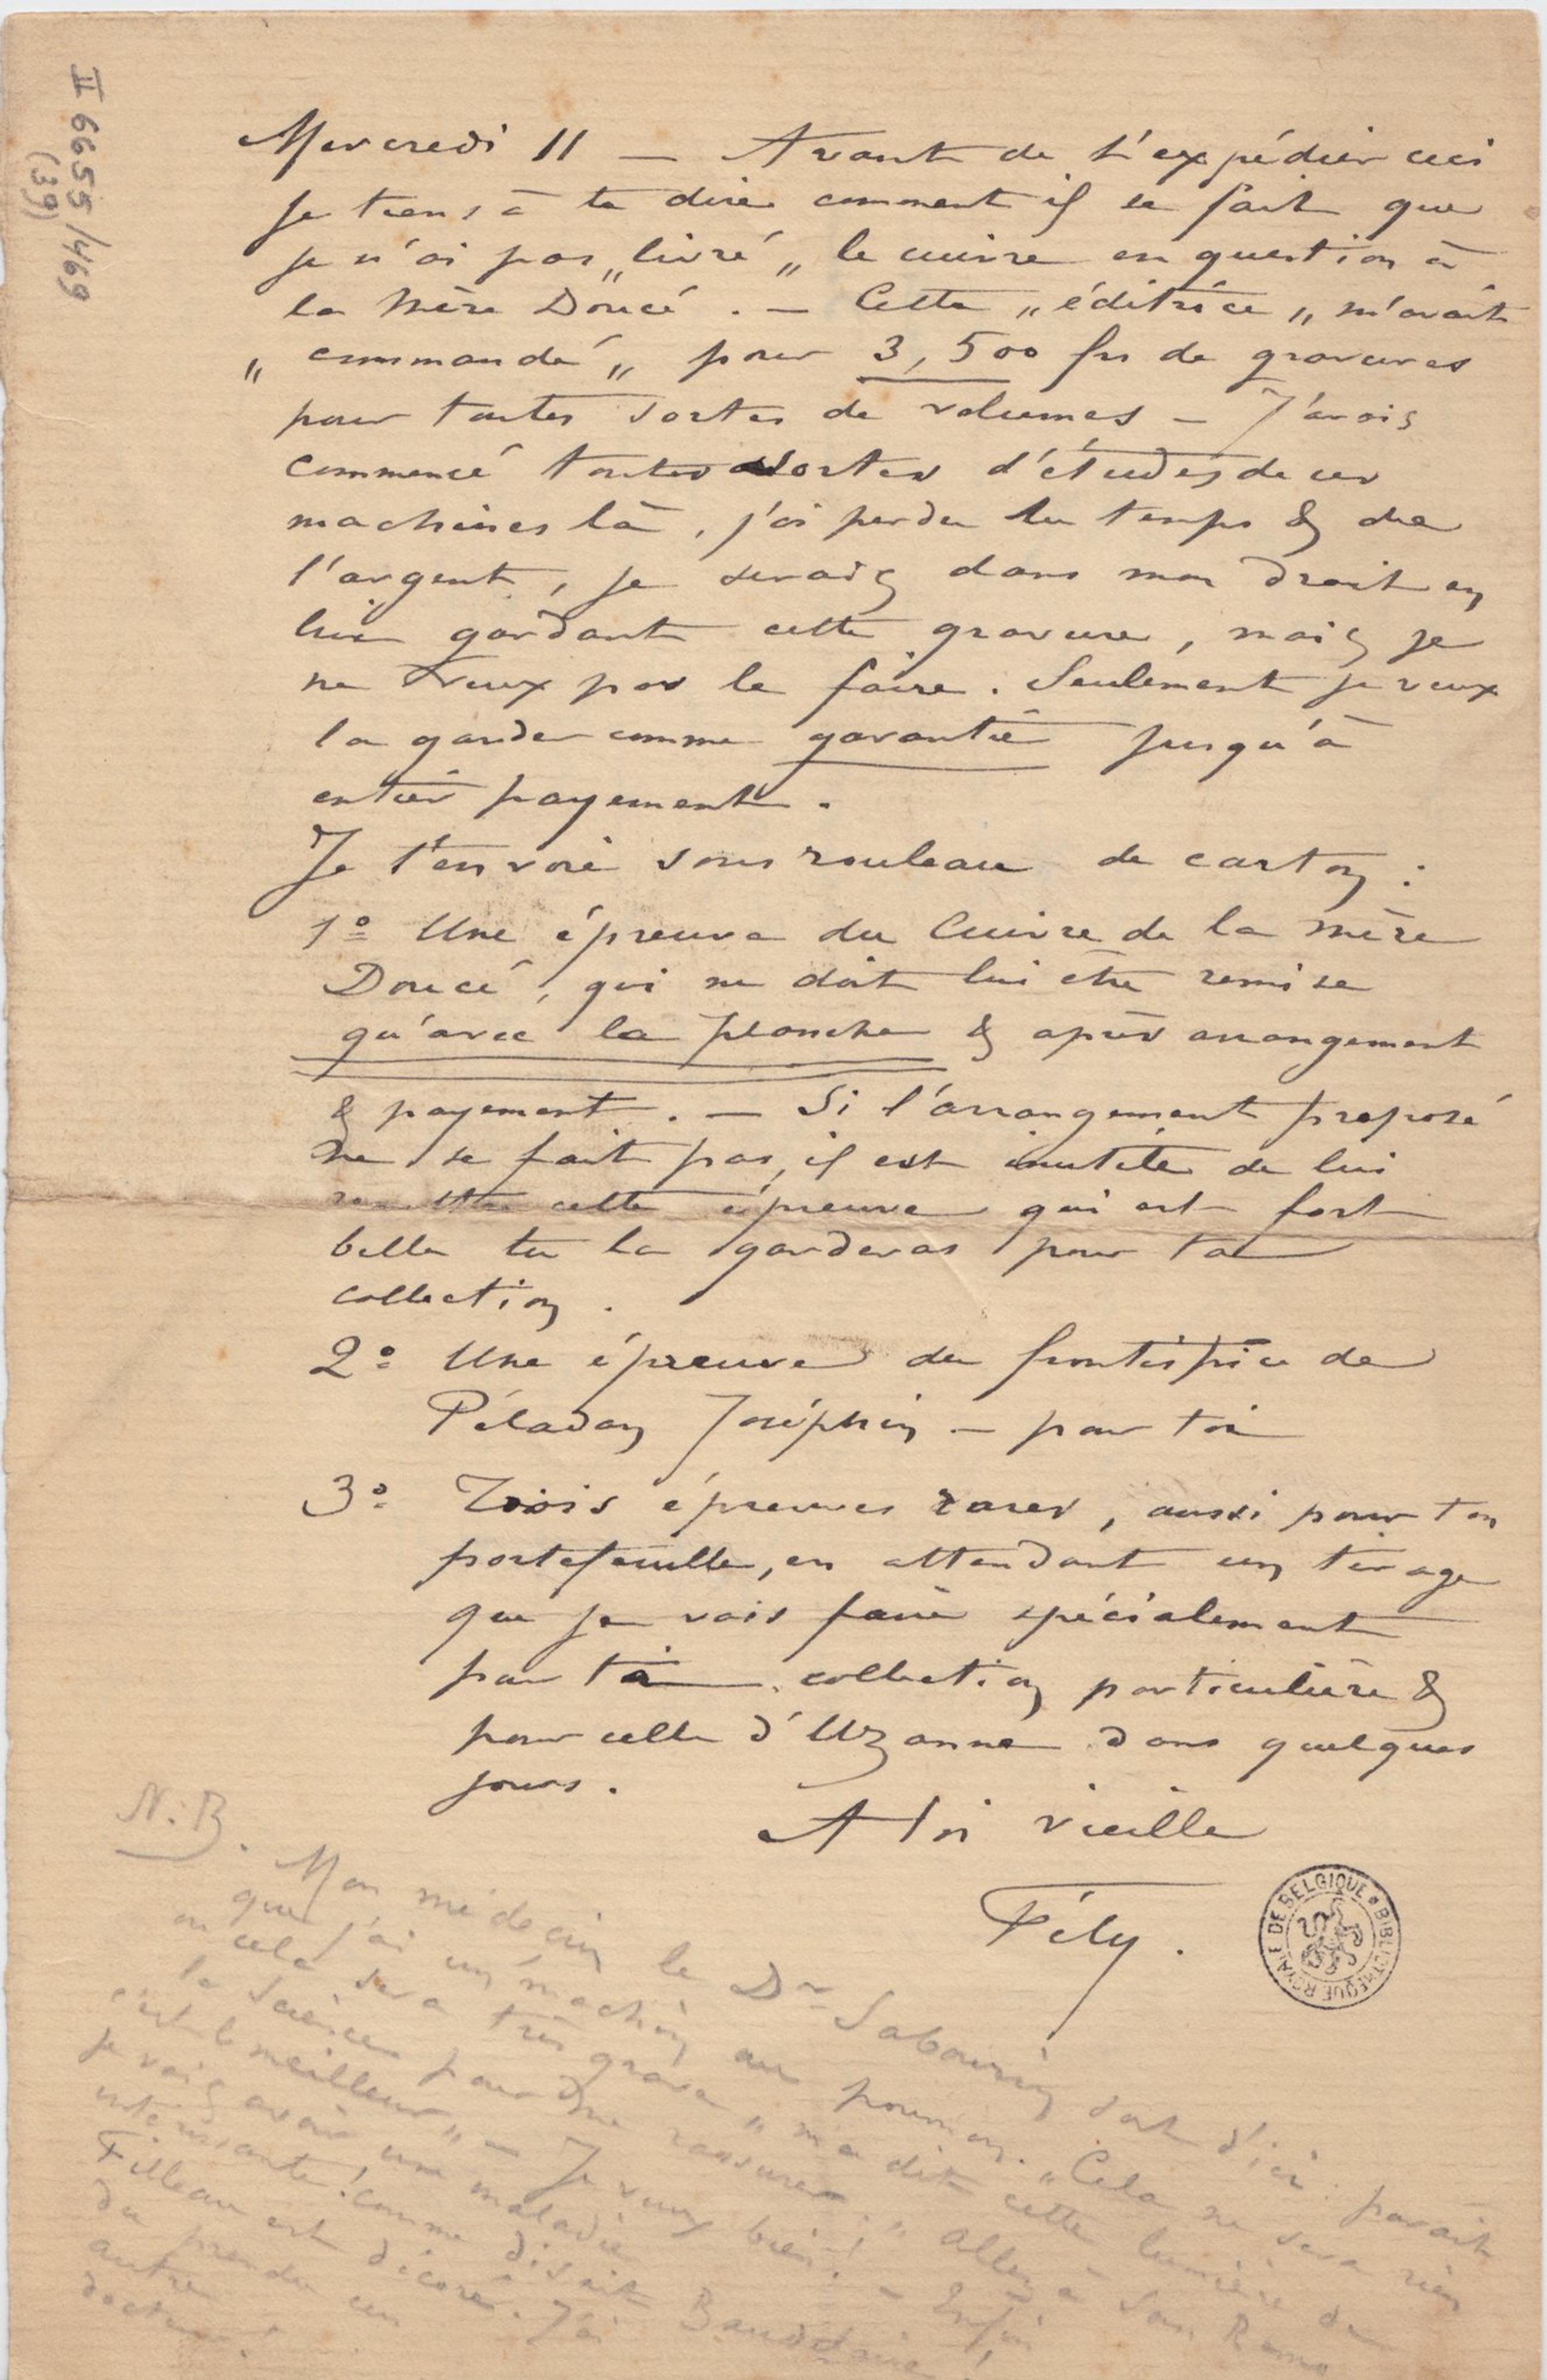 II 6655/469
(39)
Mercredi 11 — Avant de t'expédier ceci
je tiens à te dire comment il se fait que
je n'ai pas „livré„ le cuivre en question à
la Mère Doucé. — Cette „éditrice„ m'avait
„commandé„ pour 3,500 frs de gravures
pour toutes sortes de volumes — J'avais
commencé toutes sortes d'études de ces
machines là, j'ai perdu du temps & de
l'argent, je serais dans mon droit en
lui gardant cette gravure, mais je
ne veux pas le faire. Seulement je veux
la garder comme garantie jusqu'à
entier payement.
Je t'envoie sous rouleau de carton :
1º Une épreuve du Cuivre de la mère
Doucé, qui ne doit lui être remise
qu'avec la planche & après arrangement
& payement. — Si l'arrangement proposé
ne se fait pas, il est inutile de lui
remettre cette épreuve qui est fort
belle tu la garderas pour ta
collection.
2º Une épreuve du frontispice de
Péladan Joséphin — pour toi
3º Trois épreuves rares, aussi pour ton
portefeuille, en attendant un tirage
que je vais faire spécialement
pour ta collection particulière &
pour celle d'Uzanne dans quelques
jours.
A toi vieille
Fély.
BIBLIOTHEQUE ROYALE DE BELGIQUE
N.B. Mon médecin le Dr Sabourin sort d'ici. paraît
que j'ai un machin au poumon. „Cela ne sera rien
ou cela sera très grave„ m'a dit cette lumière de
la Science pour me rassurer. „Allez à San Remo
c'est le meilleur„ — Je veux bien! — Enfin
je vais avoir une maladie
intéressante! comme disait Baudelaire
Filleau est décoré. J'ai
du prendre un
autre
docteur!